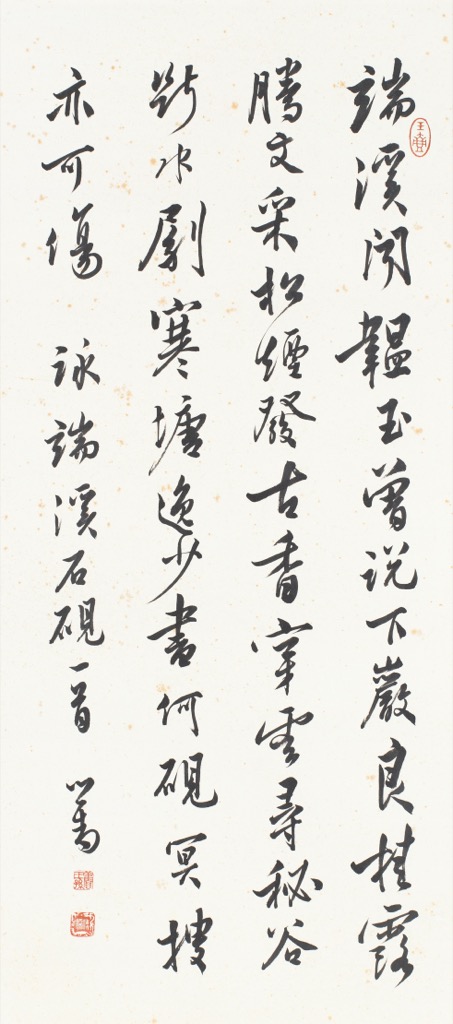 端溪聞韞玉曾說下巖良桂露
騰文采松煙發古香穿雲尋秘谷
斷水劚寒塘逸少書何硯冥搜
亦可傷　詠端溪石硯一首　心畬